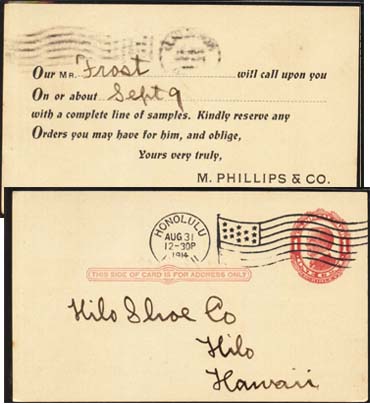 Our MR. Frost will call upon you
On or about Sept 9
with a complete line of samples. Kindly reserve any
Orders you may have for him, and oblige,
Yours very truly,
M. PHILLIPS & CO.
HONOLULU
AUG 31
12-30P
1914
THIS SIDE OF CARD IS FOR ADDRESS ONLY
Hilo Shoe Co
Hilo
Hawaii